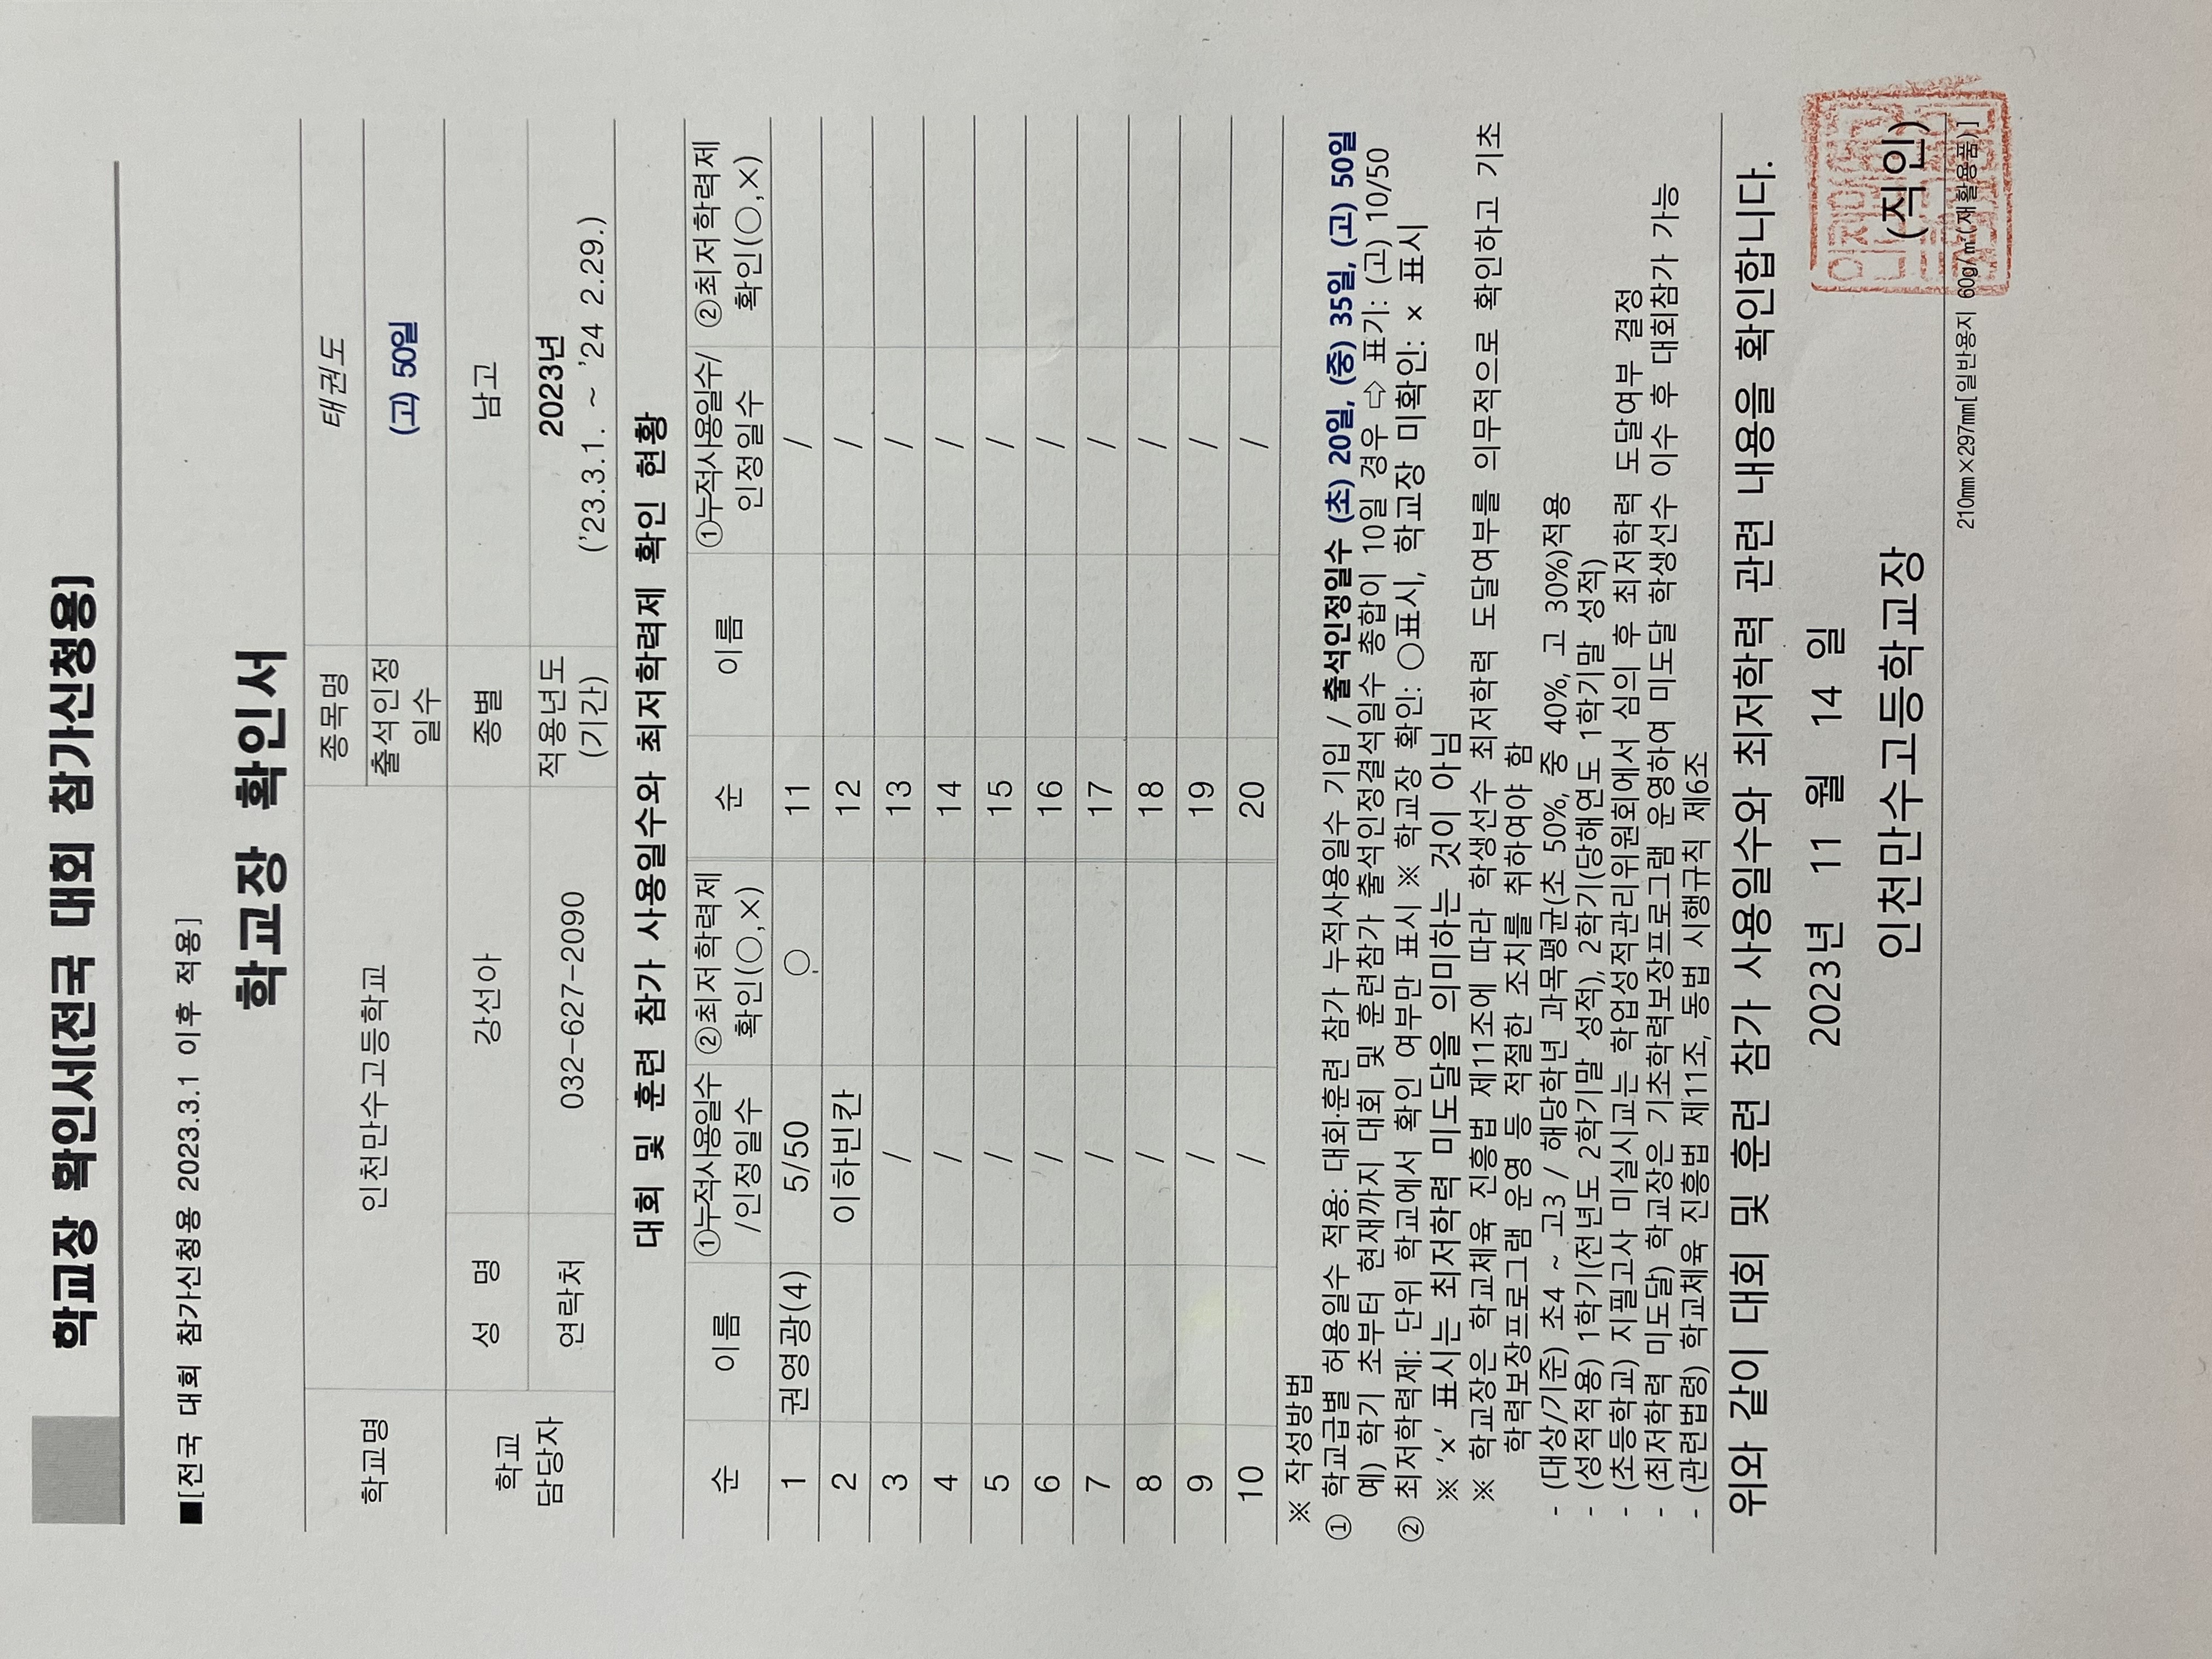 학교장 확인서(전국 대회 참가신청용)
■[전국 대회 참가신청용 2023.3.1 이후 적용]
학교장 확인서
학교명 인천만수고등학교 종목명 태권도
출석인정 일수 (고) 50일
학교 담당자 성 명 강선아 종별 남고
연락처 032-627-2090 적용년도 (기간) 2023년
('23.3.1. ~ '24 2.29.)
대회 및 훈련 참가 사용일수와 최저학력제 확인 현황
순 이름 ①누적사용일수 /인정일수 ②최저학력제 확인(○,×) 순 이름 ①누적사용일수/ 인정일수 ②최저학력제 확인(○,×)
1 권영광(4) 5/50 ○ 11 /
2 이하빈칸 12 /
3 / 13 /
4 / 14 /
5 / 15 /
6 / 16 /
7 / 17 /
8 / 18 /
9 / 19 /
10 / 20 /
※ 작성방법
① 학교급별 허용일수 적용: 대회·훈련 참가 누적사용일수 기입 / 출석인정일수 (초) 20일, (중) 35일, (고) 50일
예) 학기 초부터 현재까지 대회 및 훈련참가 출석인정결석일수 총합이 10일 경우 ⇨ 표기: (고) 10/50
② 최저학력제: 단위 학교에서 확인 여부만 표시 ※ 학교장 확인: ○표시, 학교장 미확인: × 표시
※ '×' 표시는 최저학력 미도달을 의미하는 것이 아님
※ 학교장은 학교체육 진흥법 제11조에 따라 학생선수 최저학력 도달여부를 의무적으로 확인하고 기초
학력보장프로그램 운영 등 적절한 조치를 취하여야 함
- (대상/기준) 초4 ~ 고3 / 해당학년 과목평균(초 50%, 중 40%, 고 30%)적용
- (성적적용) 1학기(전년도 2학기말 성적), 2학기(당해연도 1학기말 성적)
- (초등학교) 지필고사 미실시교는 학업성적관리위원회에서 심의 후 최저학력 도달여부 결정
- (최저학력 미도달) 학교장은 기초학력보장프로그램 운영하여 미도달 학생선수 이수 후 대회참가 가능
- (관련법령) 학교체육 진흥법 제11조, 동법 시행규칙 제6조
위와 같이 대회 및 훈련 참가 사용일수와 최저학력 관련 내용을 확인합니다.
2023년 11 월 14 일
인천만수고등학교장 (직인)
210mm×297mm[일반용지 60g/㎡(재활용품)]